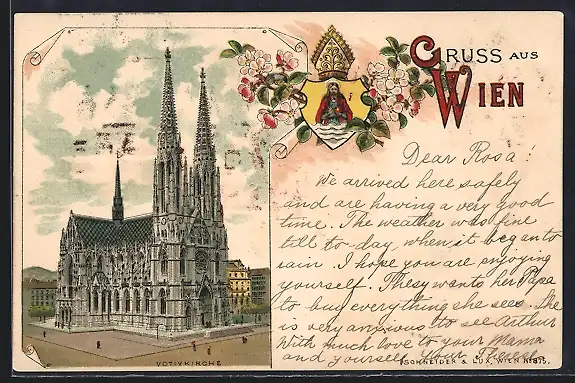 GRUSS AUS
WIEN
Dear Rosa!
We arrived here safely
and are having a very good
time. The weather was fine
till to-day, when it began to
rain. I hope you are enjoying
yourself. Thesy wants her Papa
to buy everything she sees. She
is very anxious to see Arthur
With much love to your Mama
and yourself Your Therese
VOTIVKIRCHE
SCHNEIDER & LUX, WIEN No 815.